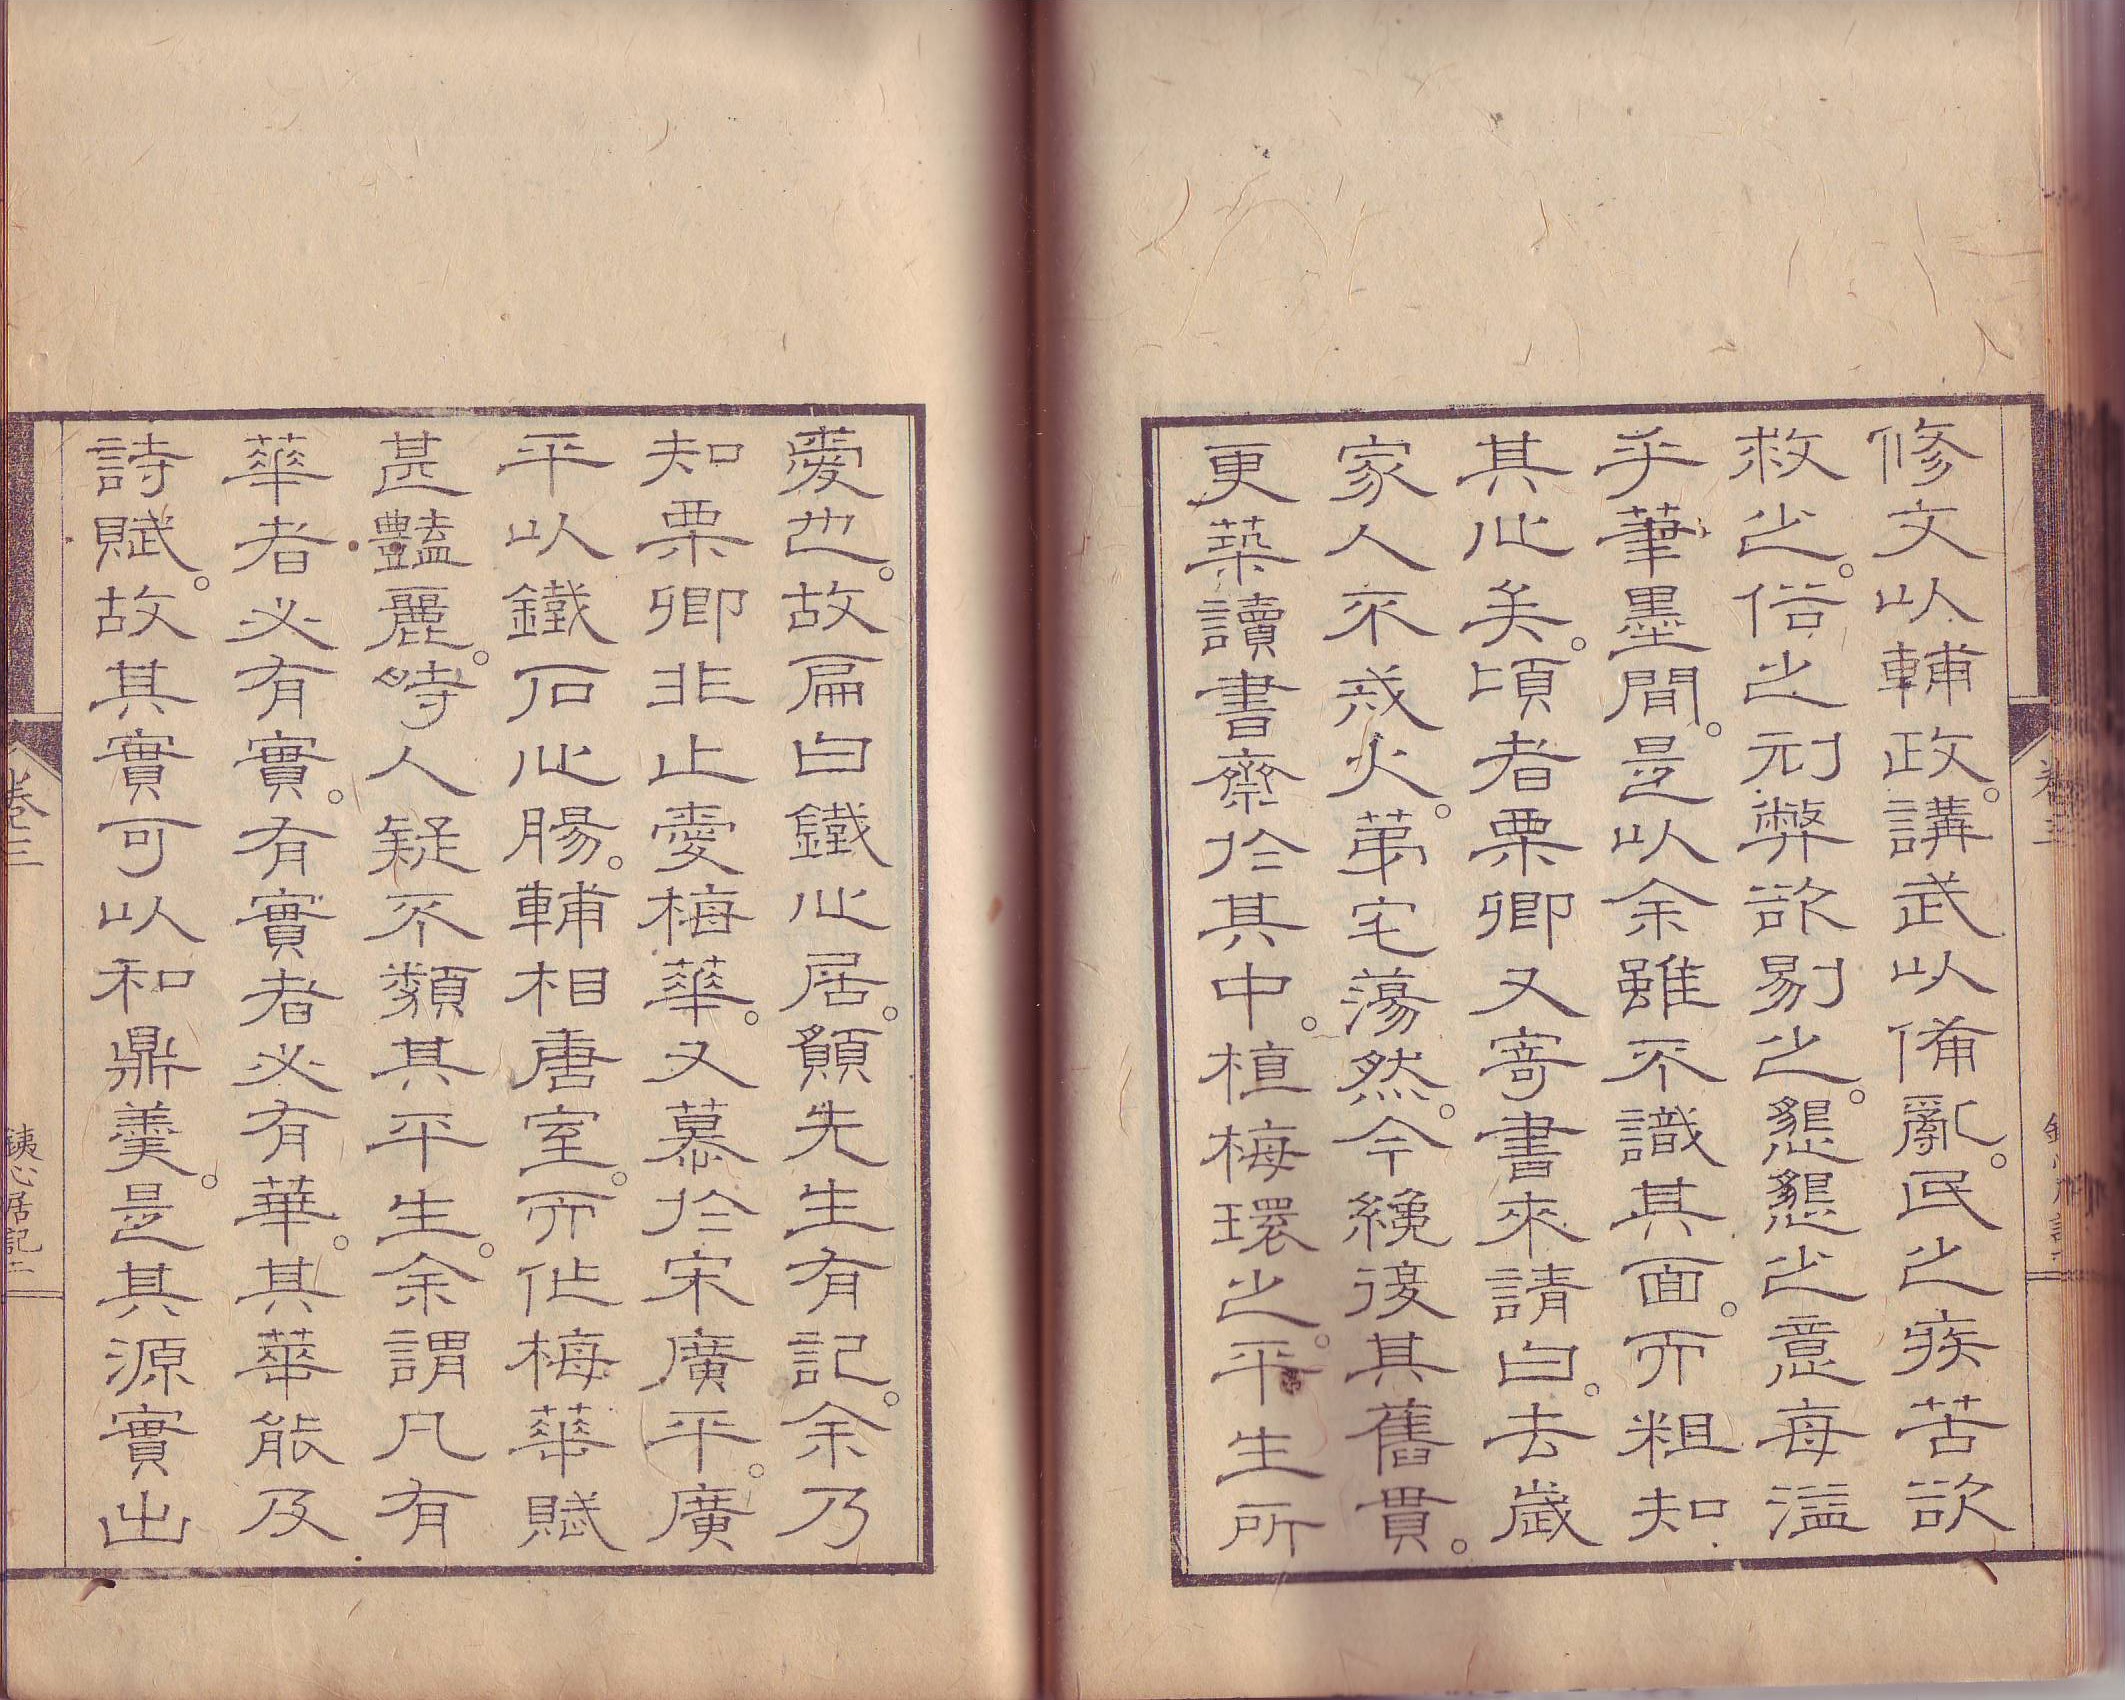 修文以輔政。講武以備亂。民之疾苦欲
救之。俗之刓弊欲易之。懇懇之意每溢
乎筆墨閒。是以余雖不識其面。而粗知
其心美。頃者栗卿又寄書來請曰。去歲
家人不戒火。第宅蕩然。今纔復其舊貫。
更築讀書齋於其中。植梅環之。平生所
愛也。故扁曰鐵心居。願先生有記。余乃
知栗卿非止愛梅華。又慕於宋廣平。廣
平以鐵石心腸。輔相唐室。而作梅華賦
甚豔麗。時人疑不類其平生。余謂凡有
華者必有實。有實者必有華。其華能及
詩賦。故其實可以和鼎羹。是其源實出
卷三
鐵心居記二